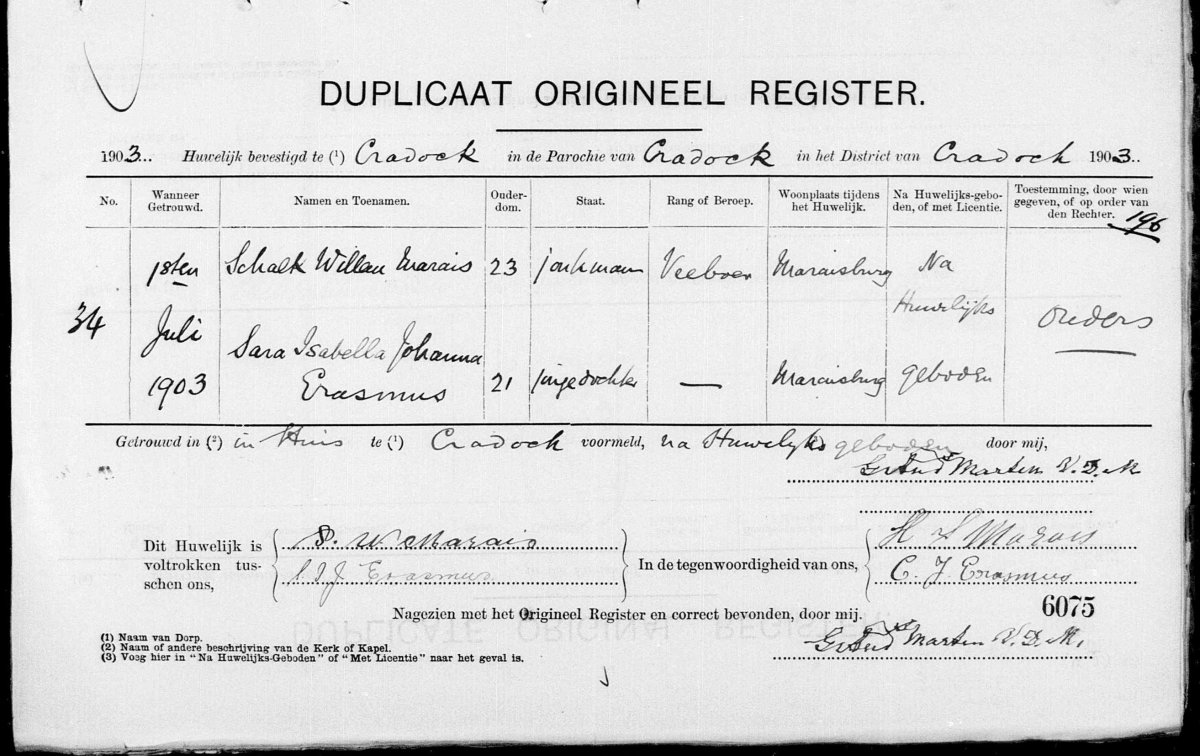 DUPLICAAT ORIGINEEL REGISTER.
1903.. Huwelijk bevestigd te (1) Cradock in de Parochie van Cradock in het District van Cradock 1903..
No. Wanneer Getrouwd. Namen en Toenamen. Ouder-dom. Staat. Rang of Beroep. Woonplaats tijdens het Huwelijk. Na Huwelijks-gebo-den, of met Licentie. Toestemming, door wien gegeven, of op order van den Rechter.
196
1sten Schalk Willem Marais 23 jonkman Veeboer Maraisburg Na
Huwelijks
34 Juli ouders
Sara Isabella Johanna
1903 Erasmus 21 jongedochter — Maraisburg geboden
Getrouwd in (2) in Huis te (1) Cradock voormeld, na Huwelyks geboden door mij,
Marten V.D.M
Dit Huwelijk is voltrokken tus-schen ons,
S. W Marais
S I J Erasmus
In de tegenwoordigheid van ons,
H Marais
C. J. Erasmus
6075
Nagezien met het Origineel Register en correct bevonden, door mij.
Marten V.D.M.
(1) Naam van Dorp.
(2) Naam of andere beschrijving van de Kerk of Kapel.
(3) Voeg hier in "Na Huwelijks-Geboden" of "Met Licentie" naar het geval is.